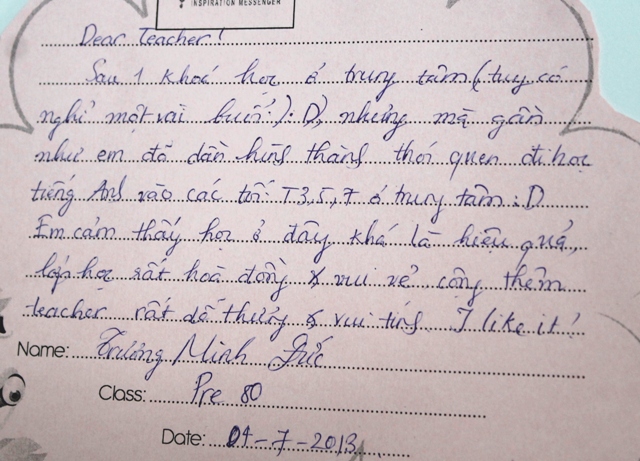 INSPIRATION MESSENGER
Dear Teacher!
Sau 1 khoá học ở trung tâm (tuy có
nghỉ một vài buổi :) :D), nhưng mà gần
như em đã dần hình thành thói quen đi học
tiếng Anh vào các tối T3,5,7 ở trung tâm :D
Em cảm thấy học ở đây khá là hiệu quả,
lớp học rất hoà đồng & vui vẻ cộng thêm
teacher rất dễ thương & vui tính. I like it!
Name: Trương Minh Đức
Class: Pre 80
Date: 04-7-2013